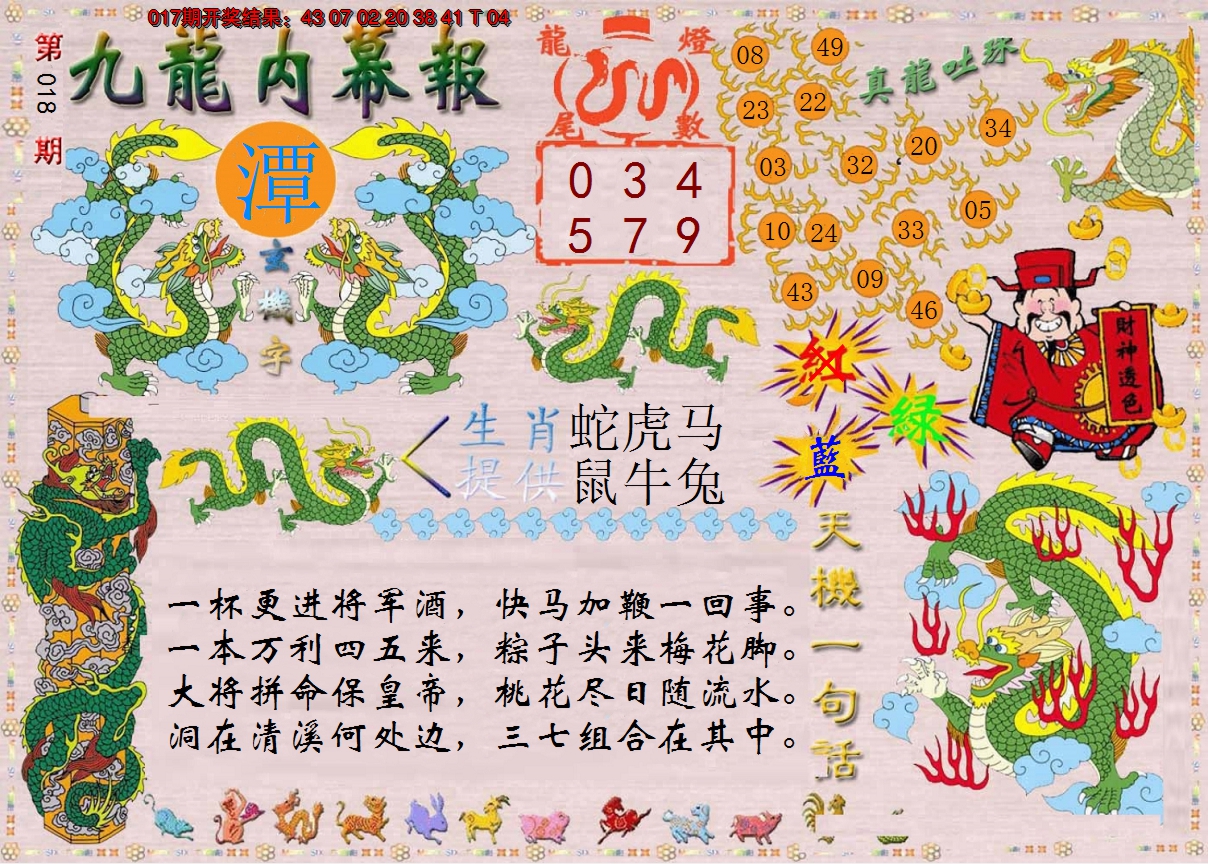 017期开奖结果：43 07 02 20 38 41 T 04
第018期
九龍内幕報
潭
玄機字
龍燈
尾數
0 3 4
5 7 9
真龍吐珠
08 49
23 22
03 32 20 34
10 24 33 05
43 09 46
財神透色
紅
綠
藍
生肖提供
蛇虎马
鼠牛兔
天機一句話
一杯更进将军酒，快马加鞭一回事。
一本万利四五来，粽子头来梅花脚。
大将拼命保皇帝，桃花尽日随流水。
洞在清溪何处边，三七组合在其中。